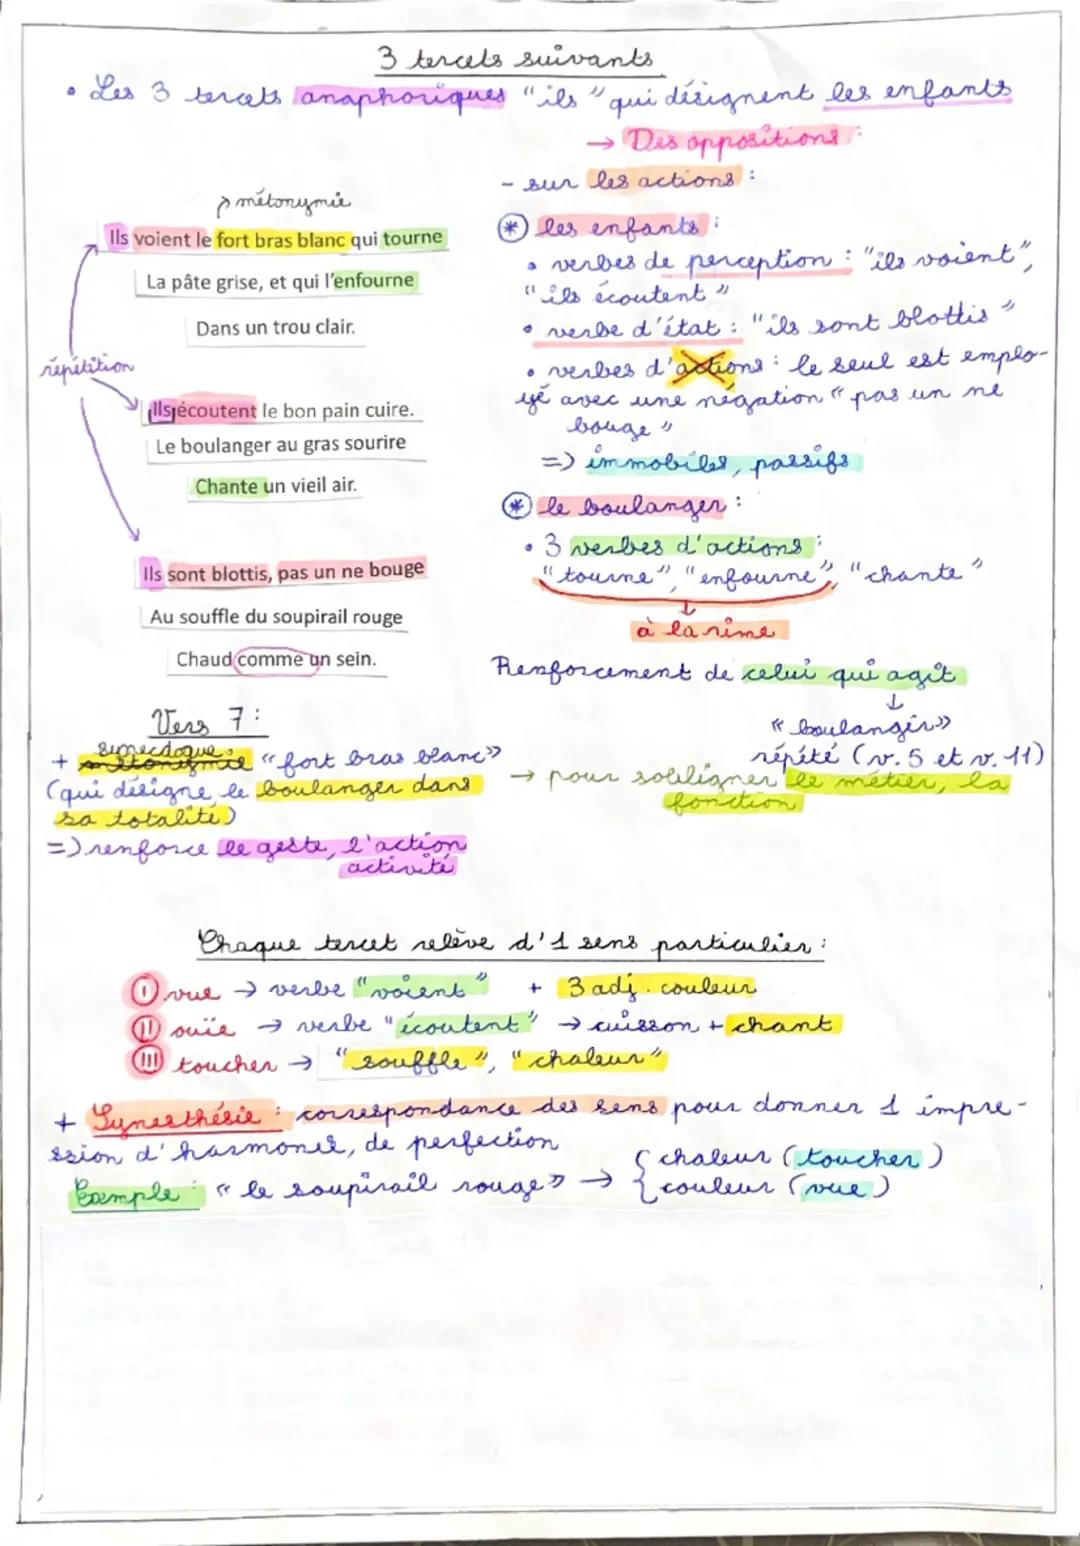 3 tercets suivants
• Les 3 tercets anaphoriques "ils" qui désignent les enfants
→ Des oppositions :
- sur les actions :
métonymie
Ils voient le fort bras blanc qui tourne
La pâte grise, et qui l'enfourne
Dans un trou clair.
répétition
Ils écoutent le bon pain cuire.
Le boulanger au gras sourire
Chante un vieil air.
Ils sont blottis, pas un ne bouge
Au souffle du soupirail rouge
Chaud comme un sein.
* les enfants :
• verbes de perception : "ils voient",
"ils écoutent"
• verbe d'état : "ils sont blottis"
• verbes d'actions : le seul est emplo-
yé avec une négation "pas un ne
bouge"
=> immobiles, passifs
* le boulanger :
• 3 verbes d'actions :
"tourne", "enfourne", "chante"
↓
à la rime
Renforcement de celui qui agit
↓
« boulanger »
répété (v.5 et v.11)
→ pour souligner le métier, la
fonction
Vers 7 :
synecdoque
+ métonymie « fort bras blanc »
(qui désigne le boulanger dans
sa totalité)
=> renforce le geste, l'action
activité
Chaque tercet relève d'1 sens particulier :
I vue → verbe "voient" + 3 adj. couleur
II ouïe → verbe "écoutent" → cuisson + chant
III toucher → "souffle", "chaleur"
+ Synesthésie : correspondance des sens pour donner 1 impre-
ssion d'harmonie, de perfection
Exemple : « le soupirail rouge » → { chaleur (toucher)
{ couleur (vue)